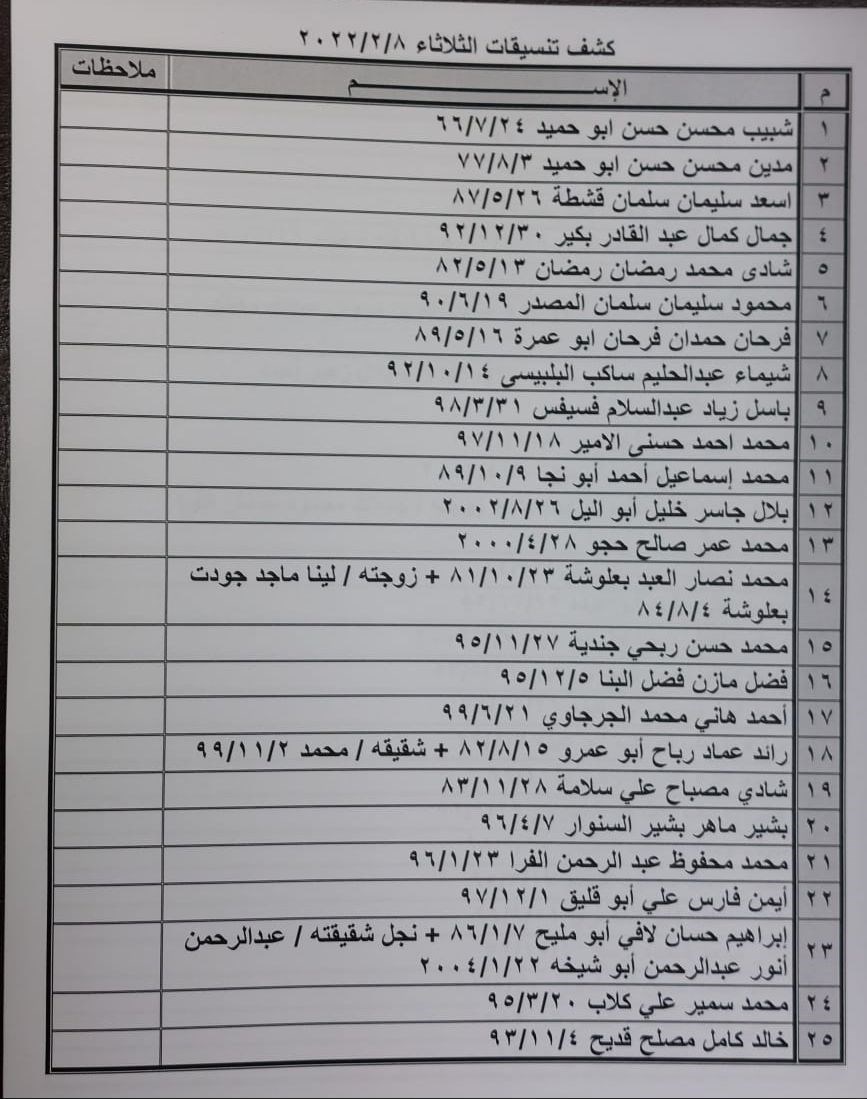 كشف تنسيقات الثلاثاء ٢٠٢٢/٢/٨
م الإســـــــم ملاحظات
١ شبيب محسن حسن ابو حميد ٦٦/٧/٢٤
٢ مدين محسن حسن ابو حميد ٧٧/٨/٣
٣ اسعد سليمان سلمان قشطة ٨٧/٥/٢٦
٤ جمال كمال عبد القادر بكير ٩٢/١٢/٣٠
٥ شادى محمد رمضان رمضان ٨٢/٥/١٣
٦ محمود سليمان سلمان المصدر ٩٠/٦/١٩
٧ فرحان حمدان فرحان ابو عمرة ٨٩/٥/١٦
٨ شيماء عبدالحليم ساكب البلبيسى ٩٢/١٠/١٤
٩ باسل زياد عبدالسلام فسيفس ٩٨/٣/٣١
١٠ محمد احمد حسنى الامير ٩٧/١١/١٨
١١ محمد إسماعيل أحمد أبو نجا ٨٩/١٠/٩
١٢ بلال جاسر خليل أبو اليل ٢٠٠٢/٨/٢٦
١٣ محمد عمر صالح حجو ٢٠٠٠/٤/٢٨
١٤ محمد نصار العبد بعلوشة ٨١/١٠/٢٣ + زوجته / لينا ماجد جودت
بعلوشة ٨٤/٨/٤
١٥ محمد حسن ربحي جندية ٩٥/١١/٢٧
١٦ فضل مازن فضل البنا ٩٥/١٢/٥
١٧ أحمد هاني محمد الجرجاوي ٩٩/٦/٢١
١٨ رائد عماد رباح أبو عمرو ٨٢/٨/١٥ + شقيقه / محمد ٩٩/١١/٢
١٩ شادي مصباح علي سلامة ٨٣/١١/٢٨
٢٠ بشير ماهر بشير السنوار ٩٦/٤/٧
٢١ محمد محفوظ عبد الرحمن الفرا ٩٦/١/٢٣
٢٢ أيمن فارس علي أبو قليق ٩٧/١٢/١
٢٣ إبراهيم حسان لافي أبو مليح ٨٦/١/٧ + نجل شقيقته / عبدالرحمن
أنور عبدالرحمن أبو شيخه ٢٠٠٤/١/٢٢
٢٤ محمد سمير علي كلاب ٩٥/٣/٢٠
٢٥ خالد كامل مصلح قديح ٩٣/١١/٤